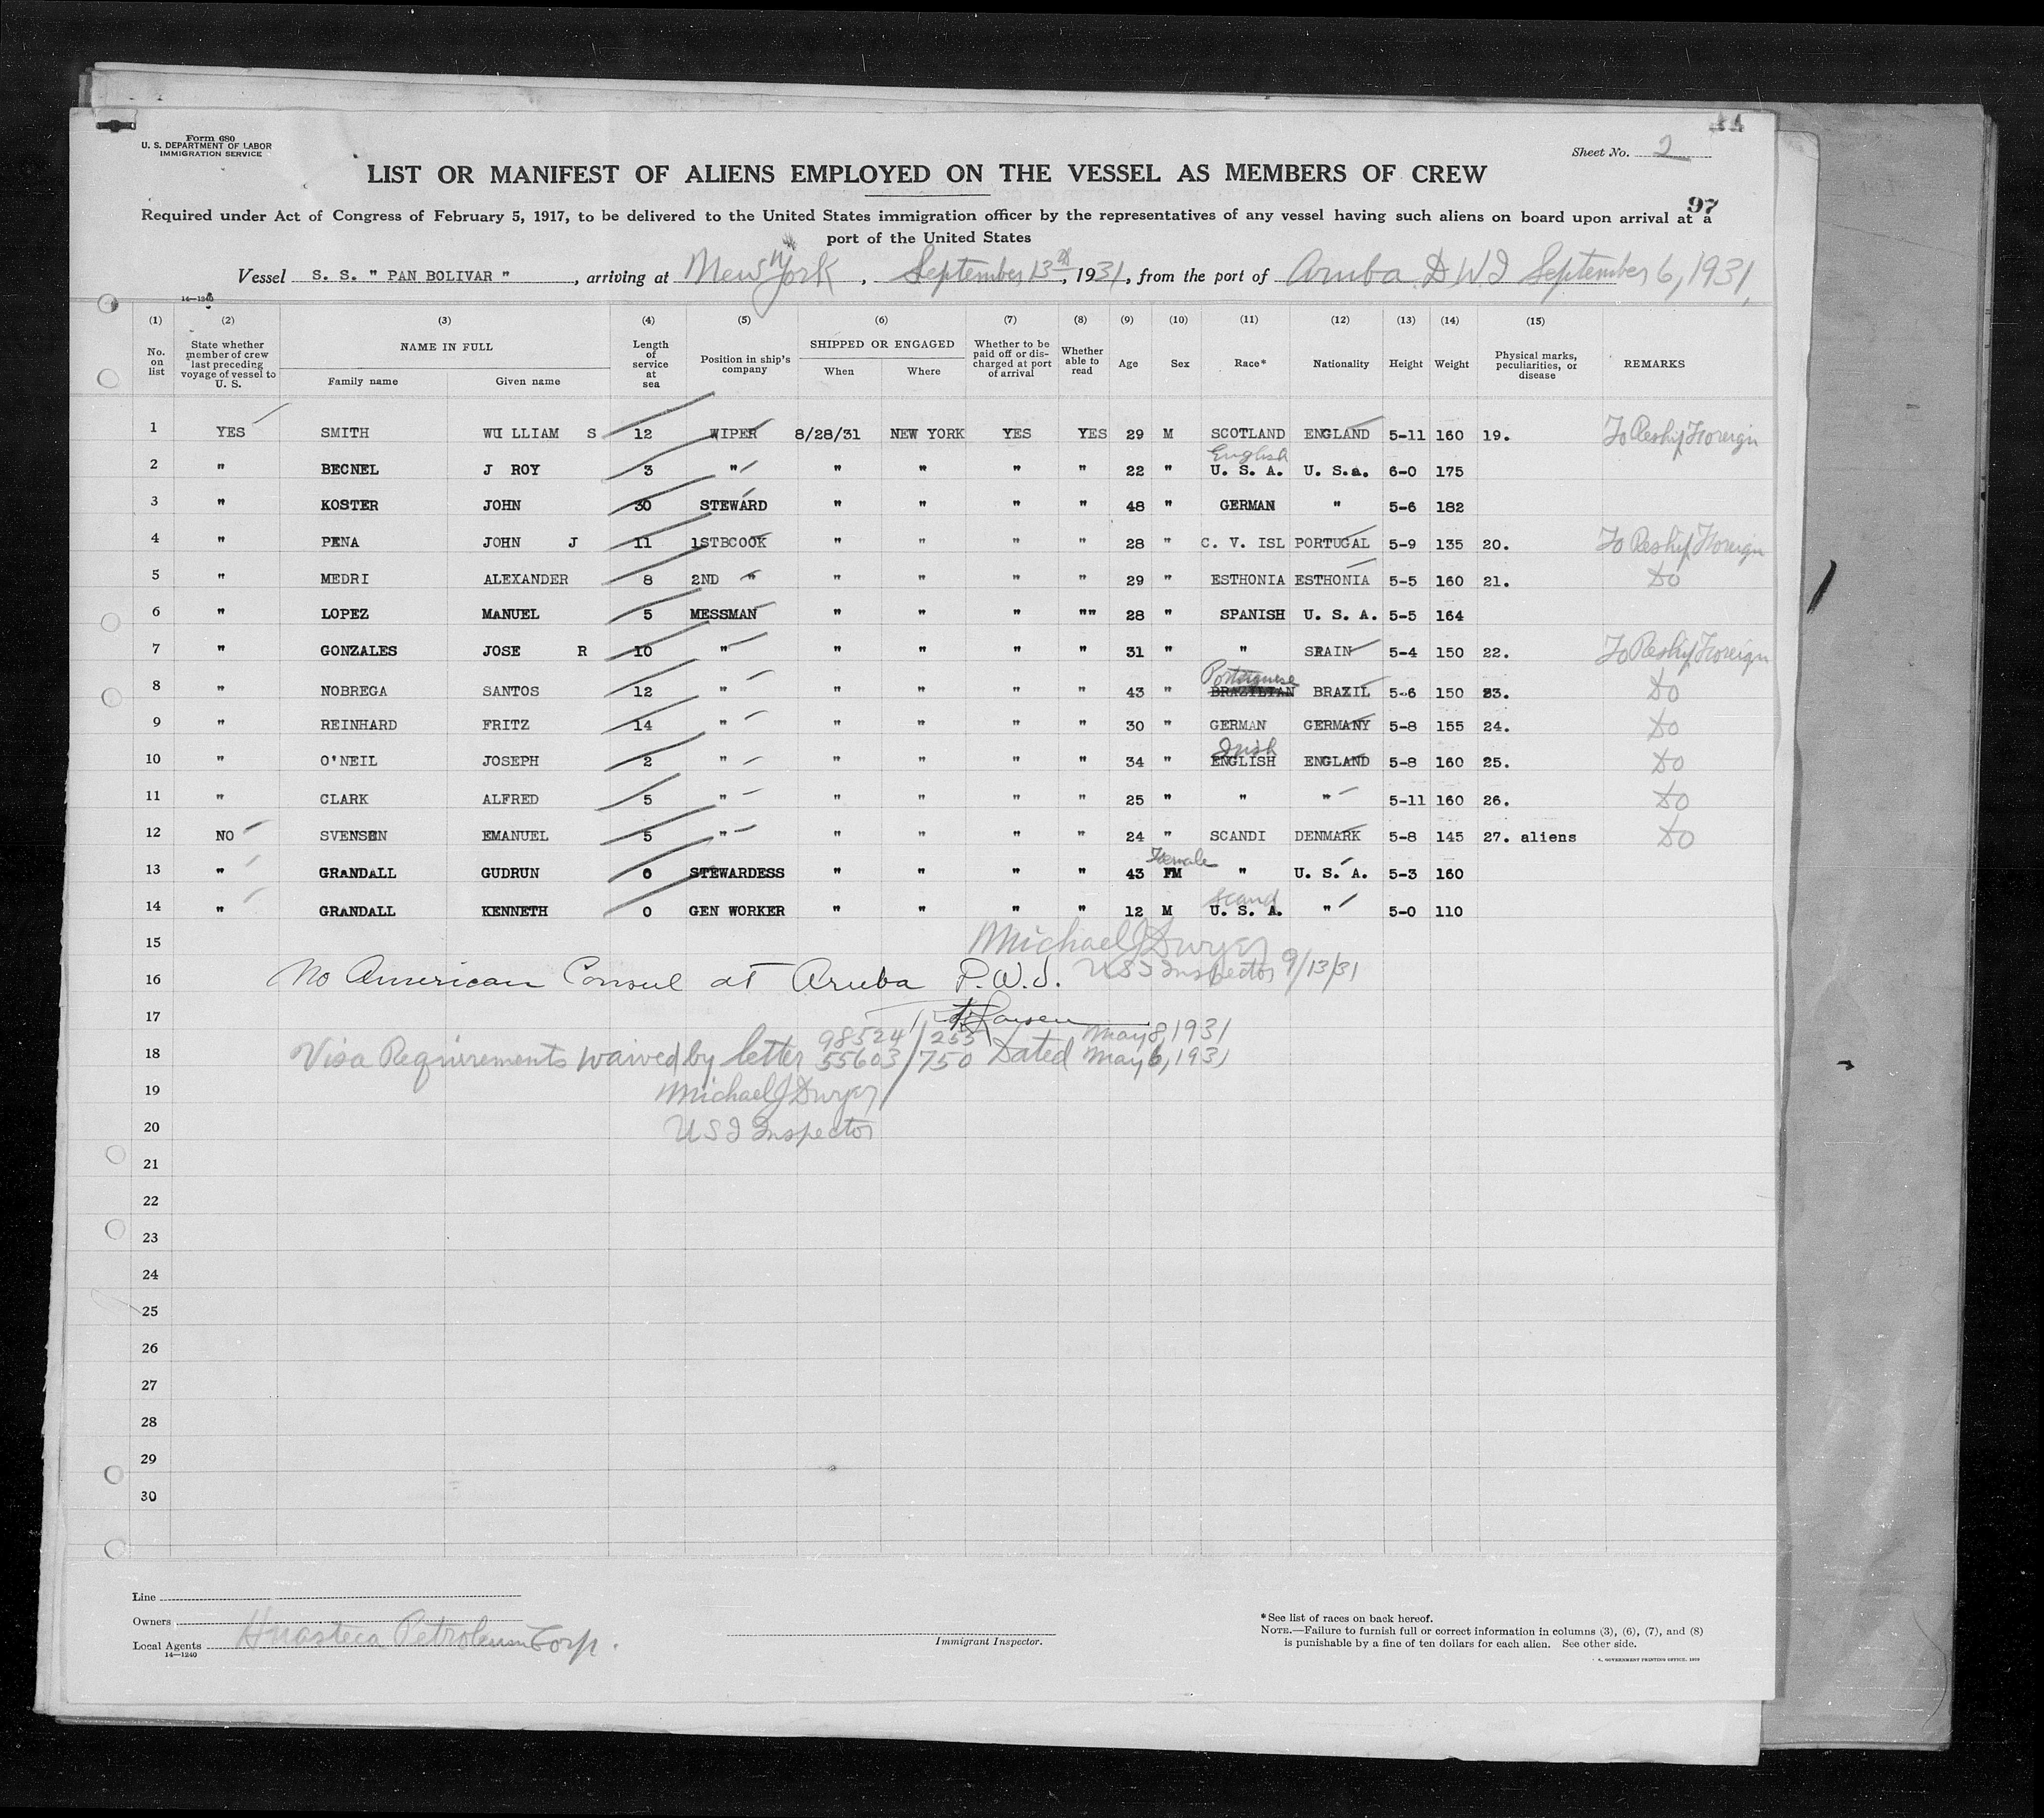 Form 680
U. S. DEPARTMENT OF LABOR
IMMIGRATION SERVICE
Sheet No. 2
LIST OR MANIFEST OF ALIENS EMPLOYED ON THE VESSEL AS MEMBERS OF CREW
97
Required under Act of Congress of February 5, 1917, to be delivered to the United States immigration officer by the representatives of any vessel having such aliens on board upon arrival at a
port of the United States
Vessel S. S. " PAN BOLIVAR " , arriving at New York , September 13th , 1931 , from the port of Aruba D W I September 6, 1931,
14—1240
(1) (2) (3) (4) (5) (6) (7) (8) (9) (10) (11) (12) (13) (14) (15)
No. on list State whether member of crew last preceding voyage of vessel to U. S. NAME IN FULL Family name Given name Length of service at sea Position in ship's company SHIPPED OR ENGAGED When Where Whether to be paid off or discharged at port of arrival Whether able to read Age Sex Race* Nationality Height Weight Physical marks, peculiarities, or disease REMARKS
1 YES SMITH WIILLIAM S 12 WIPER 8/28/31 NEW YORK YES YES 29 M SCOTLAND ENGLAND 5-11 160 19. To Reship Foreign
English
2 " BECNEL J ROY 3 " " " " " 22 " U. S. A. U. S.a. 6-0 175
3 " KOSTER JOHN 30 STEWARD " " " " 48 " GERMAN " 5-6 182
4 " PENA JOHN J 11 1STBCOOK " " " " 28 " C. V. ISL PORTUGAL 5-9 135 20. To Reship Foreign
5 " MEDRI ALEXANDER 8 2ND " " " " " 29 " ESTHONIA ESTHONIA 5-5 160 21. Do
6 " LOPEZ MANUEL 5 MESSMAN " " " "" 28 " SPANISH U. S. A. 5-5 164
7 " GONZALES JOSE R 10 " " " " " 31 " " SPAIN 5-4 150 22. To Reship Foreign
Portuguese
8 " NOBREGA SANTOS 12 " " " " " 43 " BRAZILIAN BRAZIL 5-6 150 23. Do
9 " REINHARD FRITZ 14 " " " " " 30 " GERMAN GERMANY 5-8 155 24. Do
Irish
10 " O'NEIL JOSEPH 2 " " " " " 34 " ENGLISH ENGLAND 5-8 160 25. Do
11 " CLARK ALFRED 5 " " " " " 25 " " " 5-11 160 26. Do
12 NO SVENSEN EMANUEL 5 " " " " " 24 " SCANDI DENMARK 5-8 145 27. aliens Do
Female
13 " GRANDALL GUDRUN 0 STEWARDESS " " " " 43 FM " U. S. A. 5-3 160
Scand
14 " GRANDALL KENNETH 0 GEN WORKER " " " " 12 M U. S. A. " 5-0 110
15 Michael J Dwyer
16 No American Consul at Aruba D.W.I. U S I Inspector 9/13/31
17
98524/255 May 8, 1931
18 Visa Requirements waived by letter 55603/750 Dated May 6, 1931
19 Michael J Dwyer
20 U S I Inspector
21
22
23
24
25
26
27
28
29
30
Line
Owners
Local Agents Huasteca Petroleum Corp.
14—1240
Immigrant Inspector.
*See list of races on back hereof.
NOTE.—Failure to furnish full or correct information in columns (3), (6), (7), and (8)
is punishable by a fine of ten dollars for each alien. See other side.